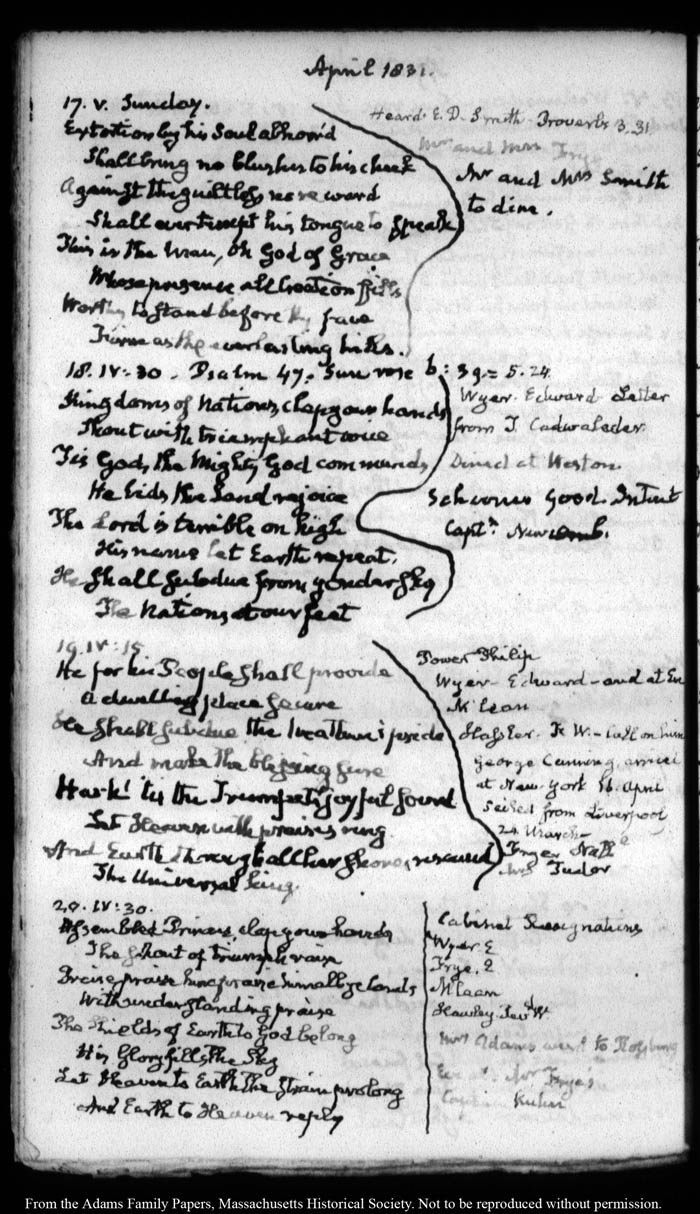 April 1831.
17. V. Sunday.
Extortion by his Soul abhorr'd
Shall bring no blushes to his cheek
Against the guiltless ne'er a word
Shall ever tempt his tongue to speak
This is the Man, Oh God of Grace
Whose presence all Creation fills
Worthy to stand before thy face
Firm as the everlasting hills.
Heard E. D. Smith Proverbs 3.31
Mr and Mrs Frye
Mr and Mrs Smith
to dine.
18. IV:30. Psalm 47. Sun rose b: 39 = 5.24.
Kingdoms of Nations, clap your hands
Shout with triumphant voice
Tis God, the Mighty God commands
He bids the Land rejoice
The Lord is terrible on high
His name let Earth repeat.
He shall subdue from yonder Sky
The Nations at our feet
Wyer. Edward Letter
from T. Cadwalader.
Dined at Weston
Schooner Good Intent
Captn. Newcomb.
19. IV:15
He for his People shall provide
A dwelling place secure
He shall subdue the heathen's pride
And make the blessing sure
Hark! tis the Trumpet's joyful sound
Let Heaven with praises ring
And Earth through all her shores resound
The Universal King.
Tower Philip
Wyer Edward and at Eve
McLean
Hassler. F. W. call on him
George Canning arrived
at New York 16 April
sailed from Liverpool
24 March
Fryer Nathl
Mrs Tudor
20. IV:30.
Assembled Princes, clap your hands
The Shout of triumph raise
Praise praise him praise him all ye lands
With understanding praise
The Shields of Earth to God belong
His Glory fills the Sky
Let Heaven to Earth the Strain prolong
And Earth to Heaven reply
Cabinet Resignations
Wyer. E
Frye. E
McLean
Hawley Revd W
Mrs Adams went to
Mr Frye's
Captain Kuhn
From the Adams Family Papers, Massachusetts Historical Society. Not to be reproduced without permission.